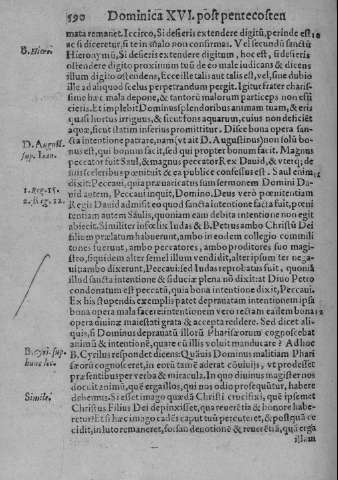 590 Dominica XVI. post pentecosten
mata remanet. Iccirco, Si desieris extendere digitū, perinde est
ac si diceretur, si te in s̄ualo non confirmas. Vel secundū sanctū
B. Hiero.
Hieronymū, Si desieris extendere digitum, hoc est, si desieris
ostendere digito proximum tuū de eo male iudicans & dicens
illum digito ostendens, Ecce ille talis aut talis est, vel, sine dubio
ille ad aliquod scelus perpetrandum pergit. Igitur frater charis-
sime hæc mala depone, & tantorū malorum particeps non effi
cieris. Et implebit Dominus splendoribus animam tuam, & eris
quasi hortus irriguus, & sicut fons aquarum, cuius non deficiēt
aquæ, sicut statim inferius promittitur. Disce bona opera san-
D. August.
sup. Ioan.
cta intentione patrare, nam (vt ait D. Augustinus) non solū bo-
nus est, qui bonum facit, sed qui propter bonum facit. Magnus
peccator fuit Saul, & magnus peccator Rex Dauid, & vterq; de
suis sceleribus pœnituit & ea publice confessus est. Saul enim
1. Reg. 15.
2. Reg. 12.
dixit: Peccaui, quia præuaricatus sum sermonem Domini Da-
uid autem, Peccaui inquit, Domino. Deus verò pœnitentiam
Regis Dauid admisit eo quod sancta intentione facta fuit, pœni
tentiam autem Sāulis, quoniam eam debita intentione non egit
abiecit. Similiter infœlix Iudas & B. Petrus ambo Christū Dei
filium prælatum habuerunt, ambo in eodem collegio commili
tones fuerunt, ambo peccatores, ambo proditores suo magi-
stro, siquidem alter semel illum vendidit, alter ipsum ter nega-
uit; ambo dixerunt, Peccaui: sed Iudas reprobatus fuit, quoniā
illud sancta intentione & fiducia plena nō dixit: at Diuo Petro
condonatum est peccatū, quia bona intentione dixit, Peccaui.
Ex his stupendis exemplis patet deprauatam intentionem ipsa
bona opera mala facere: intentionem vero rectam eadem bona
opera diuinæ maiestati grata & accepta reddere. Sed dicet ali-
quis, si Dominus deprauatā illorū Pharisæorum cognoscebat
animū & intentionē, quare cū illis voluit manducare? Ad hoc
B. Cyril. sup.
hunc loc.
B. Cyrillus respondet dicens: Quāuis Dominus malitiam Phari
sæorū cognosceret, in eorū tamē aderat cōuiuijs, vt prodesset
præsentibus per verba & miracula. In quo diuinus magister nos
docuit animū, quē erga illos, qui nos odio prosequūtur, habere
Simile.
debemus. Si esset imago quædā Christi crucifixi, quē ipsemet
Christus Filius Dei depinxisset, qua reuerētia & honore habe-
retur? Et si hæc imago cadēs caput tuū percuteret, & postquā ce
cidit, in luto remaneret, forsan deuotionē & reuerētiā, quā erga
illam